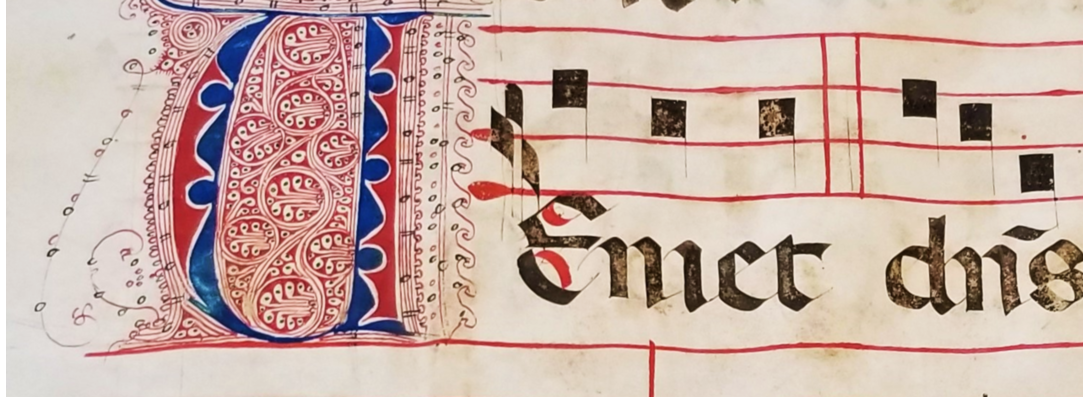 UEniet dn̄s